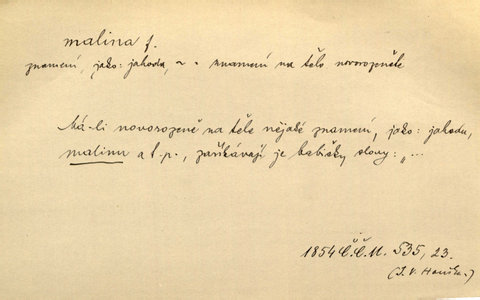 malina f.
znamení, jako: jahoda, ~ · znamení na tělo novorozeněte
Má-li novorozeně na těle nějaké znamení, jako: jahodu,
malinu a t. p., zaříkávají je babičky slovy: „...
1854 Č.Č.M. 535, 23.
(I. V. Houška.)